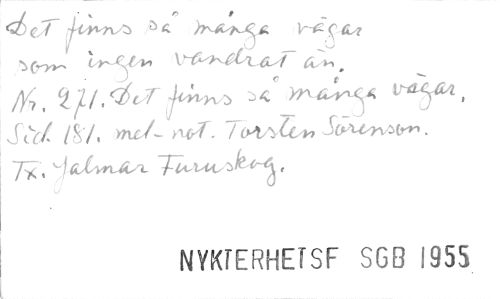 Det finns så många vägar
som ingen vandrat än.
Nr. 271. Det finns så många vägar.
Sid. 181. mel-not. Torsten Sörenson.
Tx. Jalmar Furuskog.
NYKTERHETSF SGB 1955